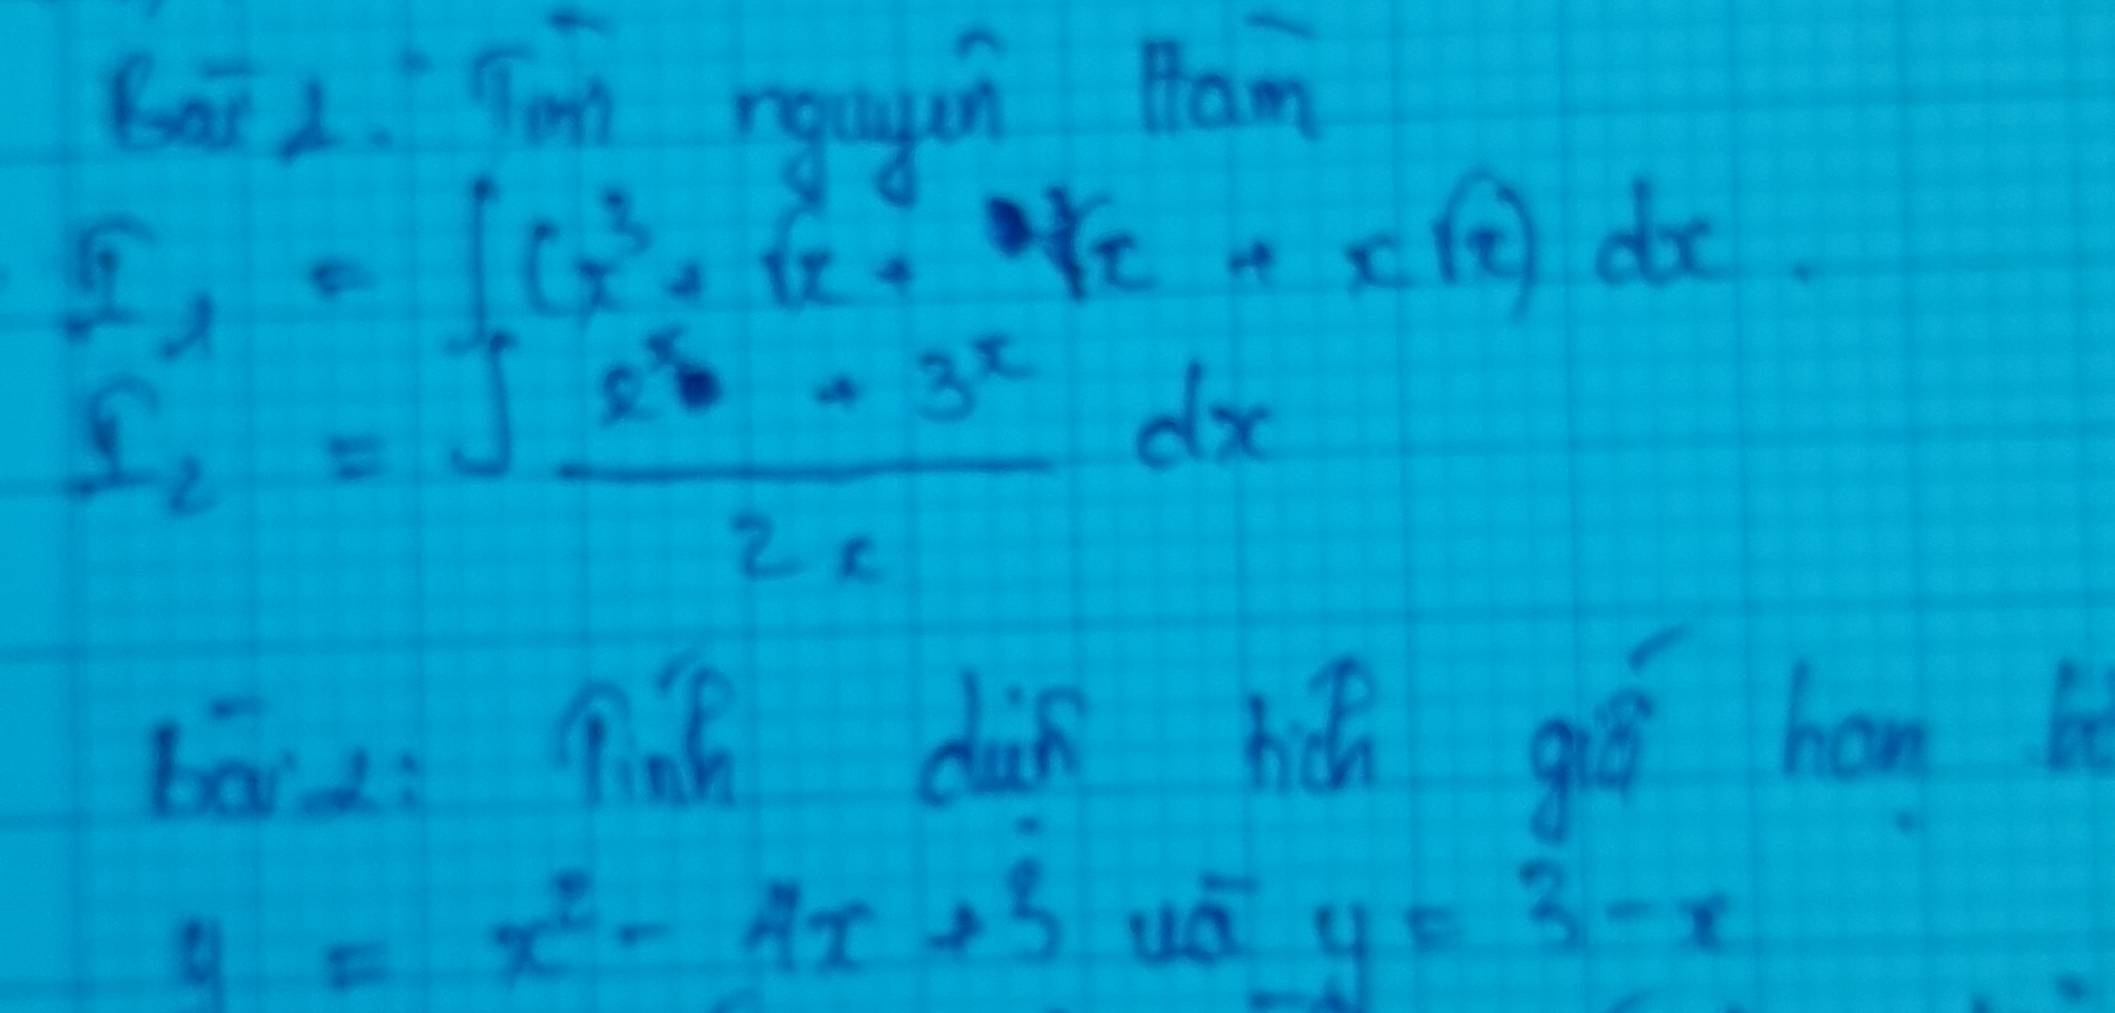 Bài 1: Tìm nguyên Hàm
I₁ = ∫(x³ + √x + ∛x + x√x) dx.
I₂ = ∫ (2ˣ + 3ˣ)/(2x) dx
bài 2: Tính diện tích giới hạn
y = x² - 4x + 3 và y = 3 - x